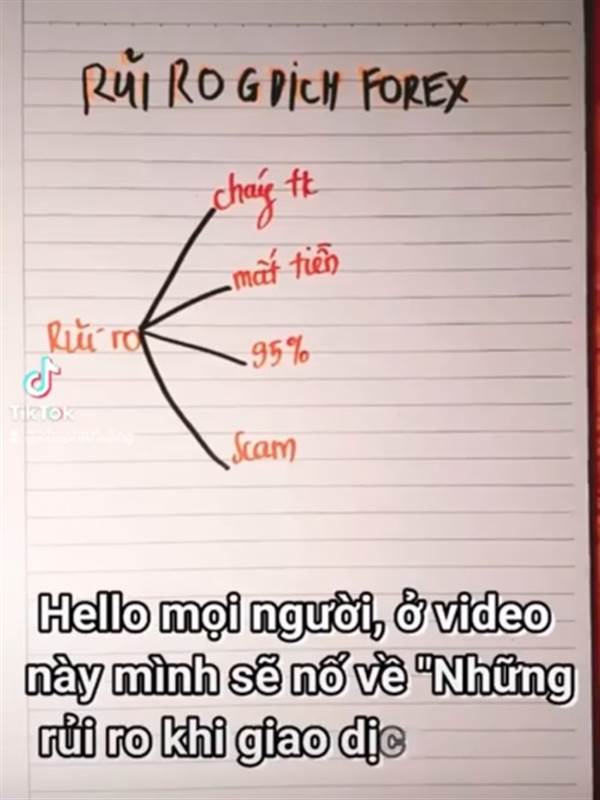 RỦI RO GDICH FOREX
cháy tk
mất tiền
Rủi ro
95%
Scam
TikTok
Hello mọi người, ở video
này mình sẽ nố về "Những
rủi ro khi giao dịc